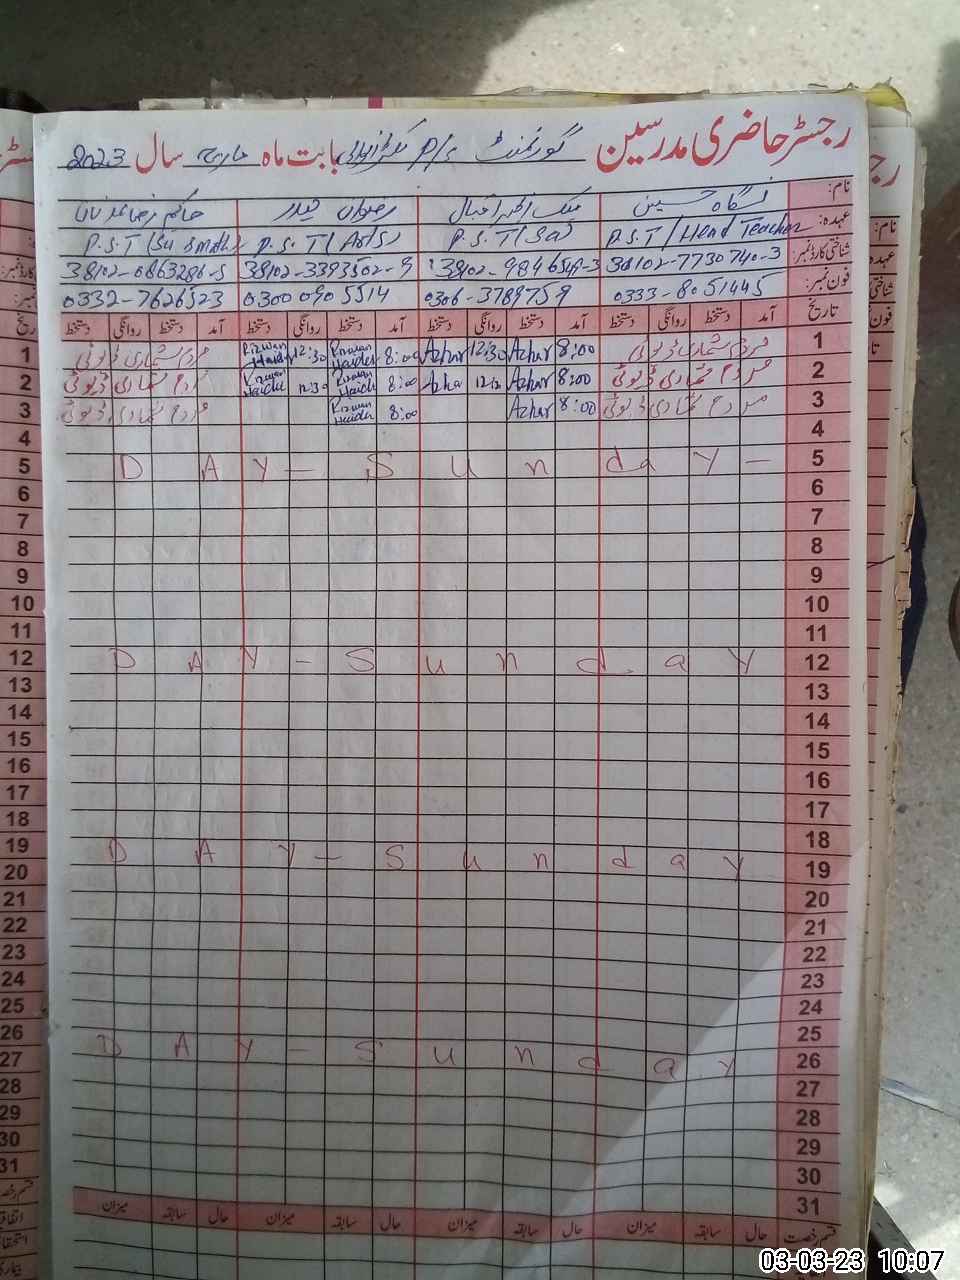 رجسٹر حاضری مدرسین گورنمنٹ P/S بابت ماہ مارچ سال 2023
نام: نگاہ حسین ملک اظہر اقبال رضوان حیدر
عہدہ: P.S.T / Head Teacher P.S.T / Sci P.S.T / Arts P.S.T / Sci
شناختی کارڈ نمبر: 38102-7730740-3 38102-9846549-3 38102-3393502-9 38102-0863286-5
فون نمبر: 0333-8051445 0306-3789759 0300 090 5514 0332-7626523
تاریخ آمد دستخط روانگی دستخط آمد دستخط روانگی دستخط آمد دستخط روانگی دستخط آمد دستخط روانگی دستخط
1 مردم شماری ڈیوٹی 8:00 Azhar 12:30 Azhar 8:00 Rizwan Haider 12:30 Rizwan Haider مردم شماری ڈیوٹی
2 مردم شماری ڈیوٹی 8:00 Azhar Azhar 8:00 Rizwan Haider 12:30 Rizwan Haider مردم شماری ڈیوٹی
3 مردم شماری ڈیوٹی 8:00 Azhar 8:00 Rizwan Haider مردم شماری ڈیوٹی
4
5 DAY - Sunday -
6
7
8
9
10
11
12 DAY - Sunday
13
14
15
16
17
18
19 DAY - Sunday
20
21
22
23
24
25
26 DAY - Sunday
27
28
29
30
31
قسم رخصت حال سابقہ میزان حال سابقہ میزان حال سابقہ میزان حال سابقہ میزان
03-03-23 10:07